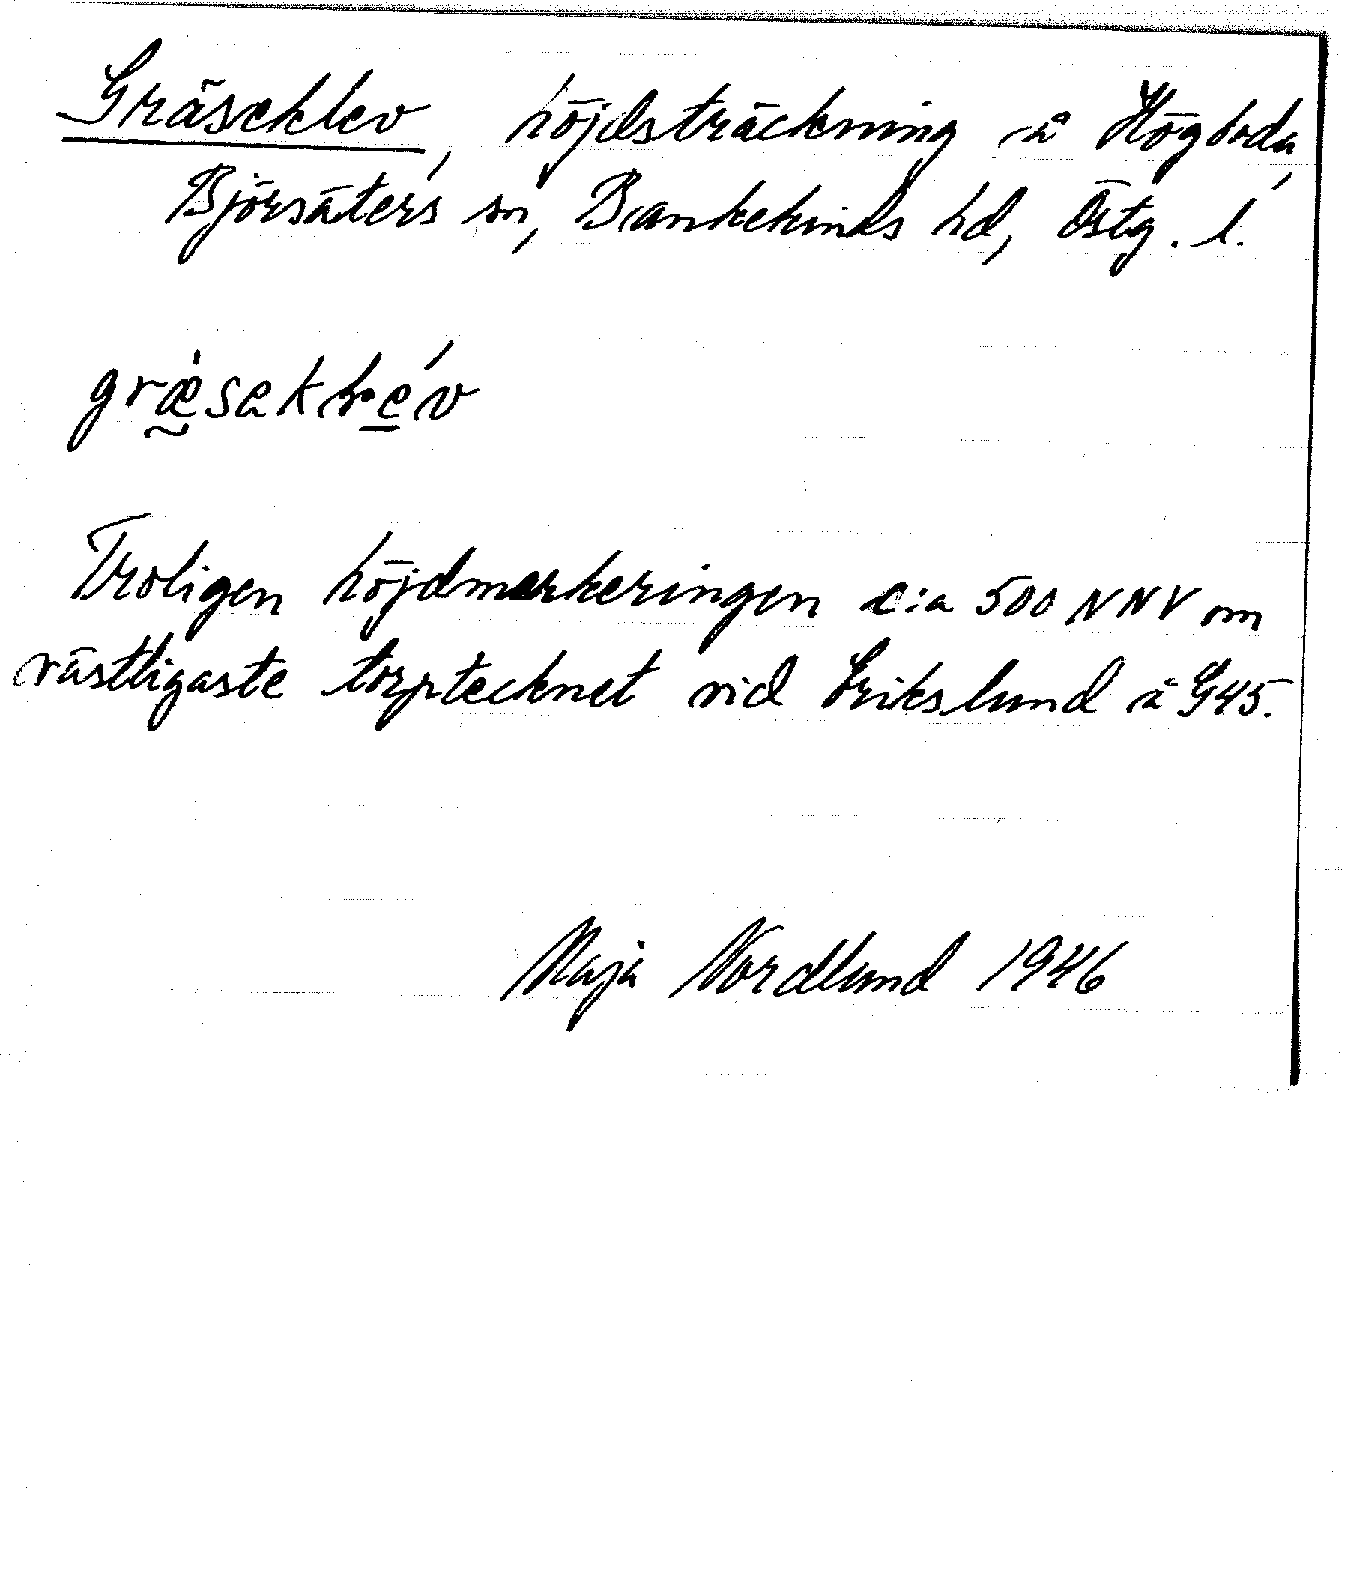 Gräseklev, höjdsträckning å Högboda,
Björsäters sn, Bankekinds hd, Östg. l.
græ̀saklé̲v
Troligen höjdmarkeringen c:a 500 NNV om
västligaste torptecknet vid Erikslund å G45.
Maja Nordlund 1946